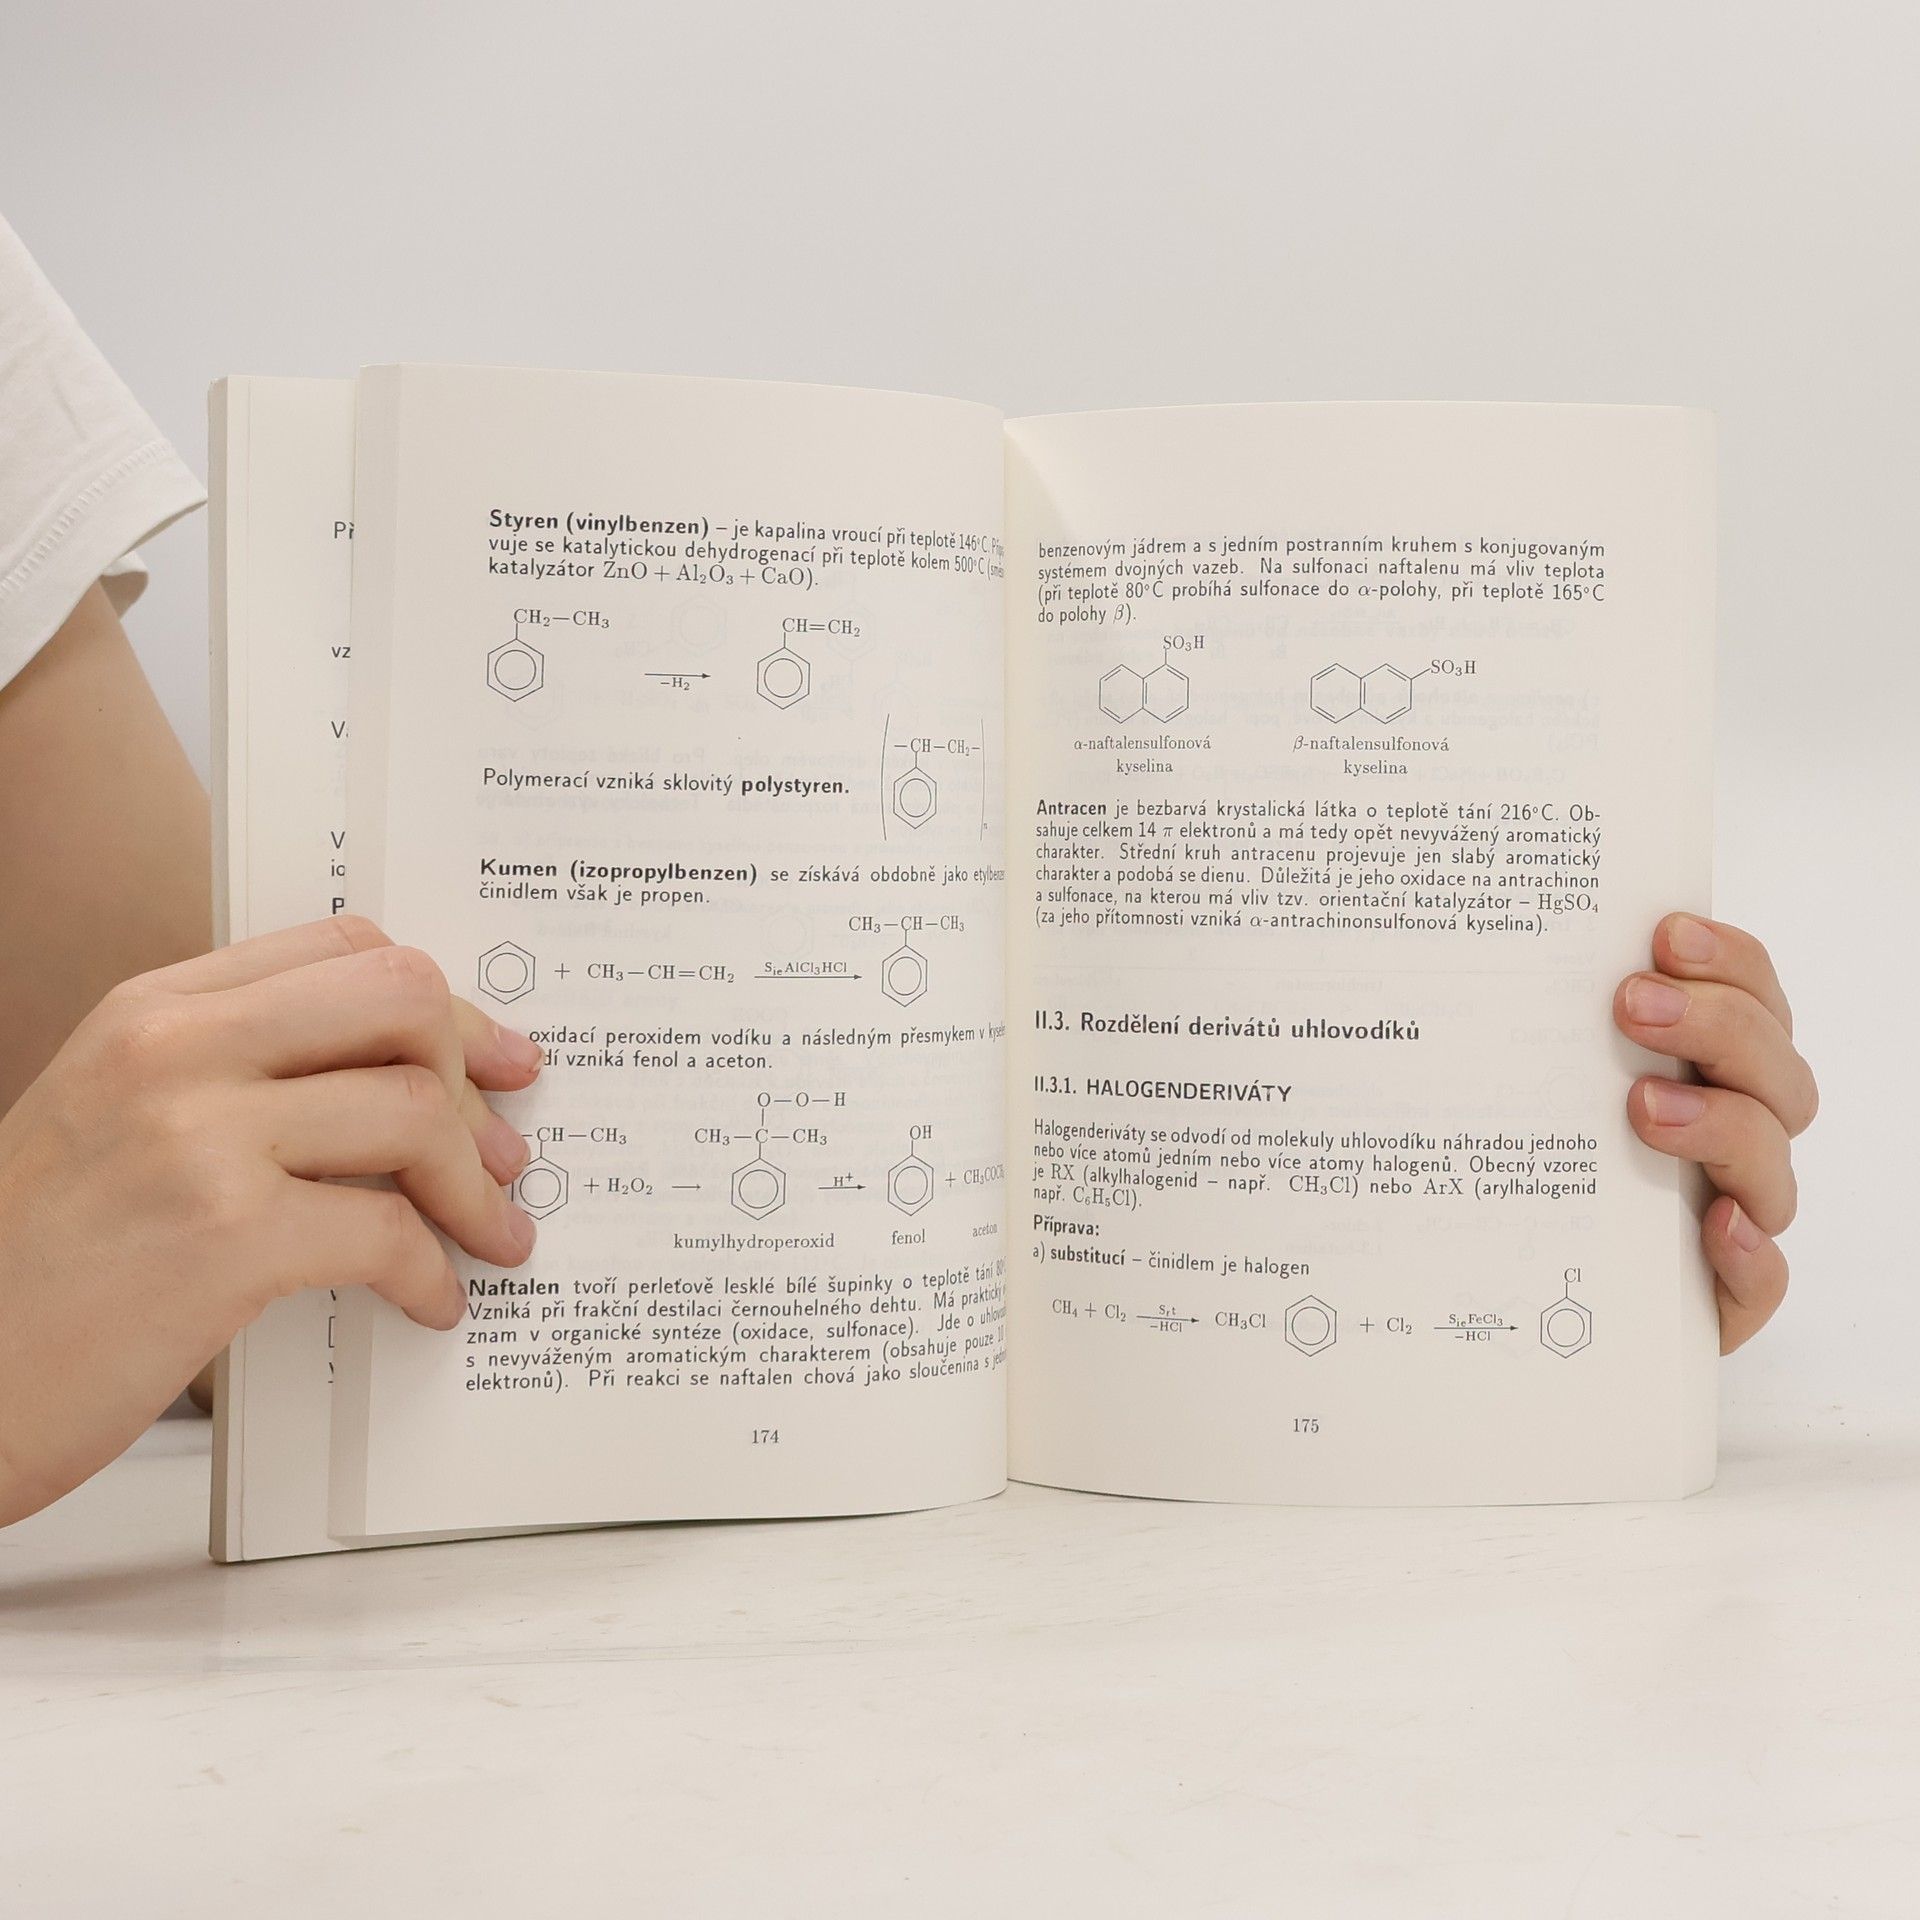 Př
vz
V
io
P
Styren (vinylbenzen) – je kapalina vroucí při teplotě 146°C.
vuje se katalytickou dehydrogenací při teplotě kolem 500°C
katalyzátor ZnO + Al₂O₃ + CaO).
CH₂—CH₃
CH=CH₂
−H₂
—CH—CH₂—
n
Polymerací vzniká sklovitý polystyren.
Kumen (izopropylbenzen) se získává obdobně jako
činidlem však je propen.
CH₃—CH—CH₃
+ CH₃—CH=CH₂ S_ie AlCl₃HCl
oxidací peroxidem vodíku a následným přesmykem v
dí vzniká fenol a aceton.
O—O—H
—CH—CH₃ CH₃—C—CH₃ OH
+ H₂O₂ ⟶ H⁺ +
kumylhydroperoxid fenol aceton
Naftalen tvoří perleťově lesklé bílé šupinky o teplotě tání
Vzniká při frakční destilaci černouhelného dehtu. Má praktický
znam v organické syntéze (oxidace, sulfonace). Jde o
s nevyváženým aromatickým charakterem (obsahuje pouze 10
elektronů). Při reakci se naftalen chová jako sloučenina s
174
benzenovým jádrem a s jedním postranním kruhem s konjugovaným
systémem dvojných vazeb. Na sulfonaci naftalenu má vliv teplota
(při teplotě 80°C probíhá sulfonace do α-polohy, při teplotě 165°C
do polohy β).
SO₃H
SO₃H
α-naftalensulfonová β-naftalensulfonová
kyselina kyselina
Antracen je bezbarvá krystalická látka o teplotě tání 216°C. Ob-
sahuje celkem 14 π elektronů a má tedy opět nevyvážený aromatický
charakter. Střední kruh antracenu projevuje jen slabý aromatický
charakter a podobá se dienu. Důležitá je jeho oxidace na antrachinon
a sulfonace, na kterou má vliv tzv. orientační katalyzátor – HgSO₄
(za jeho přítomnosti vzniká α-antrachinonsulfonová kyselina).
II.3. Rozdělení derivátů uhlovodíků
II.3.1. HALOGENDERIVÁTY
Halogenderiváty se odvodí od molekuly uhlovodíku náhradou jednoho
nebo více atomů jedním nebo více atomy halogenů. Obecný vzorec
je RX (alkylhalogenid – např. CH₃Cl) nebo ArX (arylhalogenid
např. C₆H₅Cl).
Příprava:
a) substitucí – činidlem je halogen
Cl
CH₄ + Cl₂ S_rt −HCl CH₃Cl + Cl₂ S_ie FeCl₃ −HCl
175